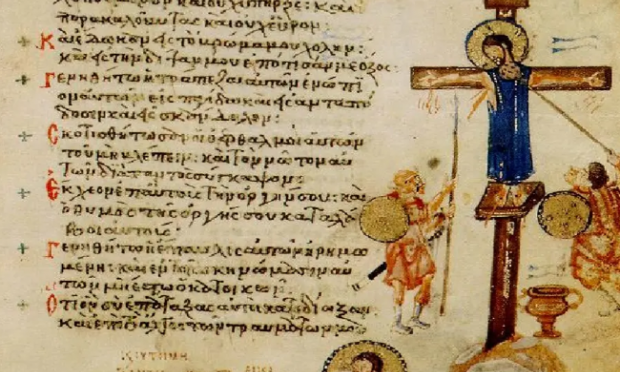 καὶ οὐχ ὑπῆρξε· καὶ
παρακαλοῦντας καὶ οὐχ εὗρον:
Καὶ ἔδωκαν εἰς τὸ βρῶμά μου χολήν:
καὶ εἰς τὴν δίψαν μου ἐπότισάν με ὄξος:
Γενηθήτω ἡ τράπεζα αὐτῶν ἐνώπι
ον αὐτῶν εἰς παγίδα καὶ εἰς ἀνταπό
δοσιν καὶ εἰς σκάνδαλον:
Σκοτισθήτωσαν οἱ ὀφθαλμοὶ αὐτῶν
τοῦ μὴ βλέπειν· καὶ τὸν νῶτον αὐ
τῶν διαπαντὸς σύγκαμψον:
Ἔκχεον ἐπ' αὐτοὺς τὴν ὀργήν σου· καὶ
ὁ θυμὸς τῆς ὀργῆς σου καταλά
βοι αὐτούς:
Γενηθήτω ἡ ἔπαυλις αὐτῶν ἠρημω
μένη· καὶ ἐν τοῖς σκηνώμασιν αὐ
τῶν μὴ ἔστω ὁ κατοικῶν:
Ὅτι ὃν σὺ ἐπάταξας αὐτοὶ κατεδίωξαν·
καὶ ἐπὶ τὸ ἄλγος τῶν τραυμάτων μου